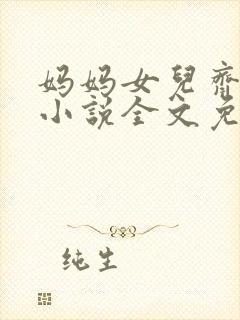 妈妈女兒齊
小説全文免
纯生